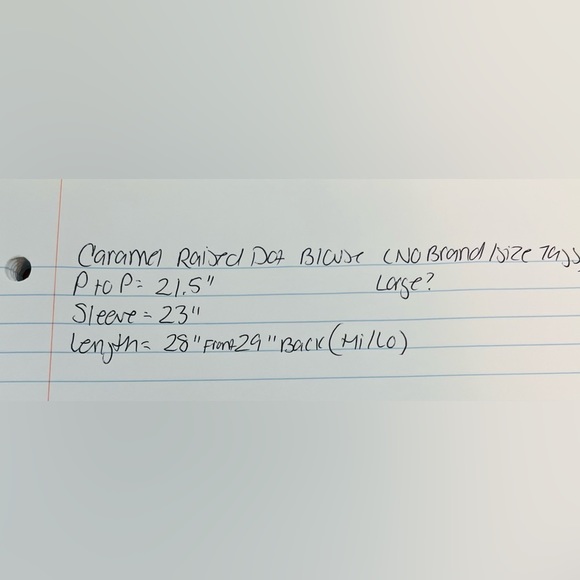 Caramel Raised Dot Blouse (No Brand/Size Tags
P to P= 21.5" Large?
Sleeve = 23"
Length= 28" Front 29" Back (Hi/Lo)